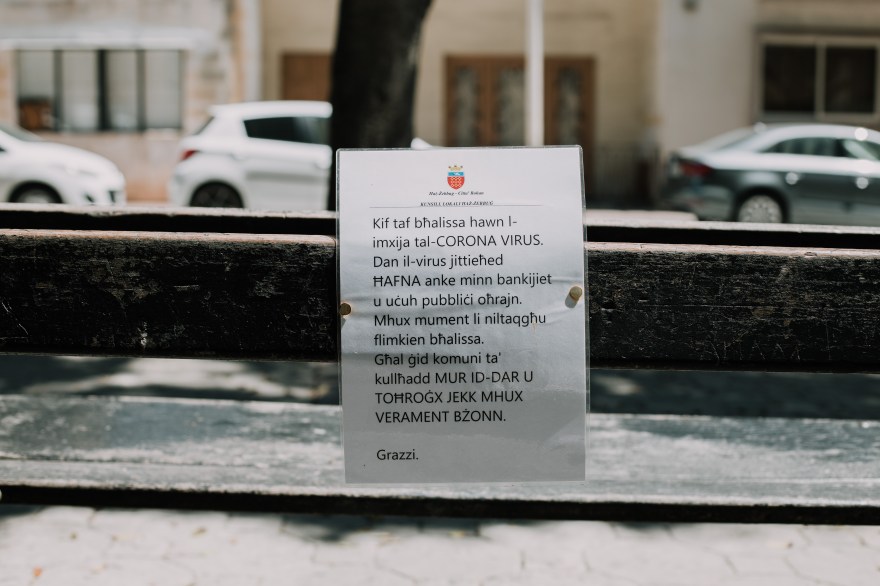 Ħaż-Żebbuġ - Città Rohan
KUNSILL LOKALI ĦAŻ-ŻEBBUĠ
Kif taf bħalissa hawn l-
imxija tal-CORONA VIRUS.
Dan il-virus jittieħed
ĦAFNA anke minn bankijiet
u uċuh pubbliċi oħrajn.
Mhux mument li niltaqgħu
flimkien bħalissa.
Għal ġid komuni ta'
kullħadd MUR ID-DAR U
TOĦROĠX JEKK MHUX
VERAMENT BŻONN.
Grazzi.